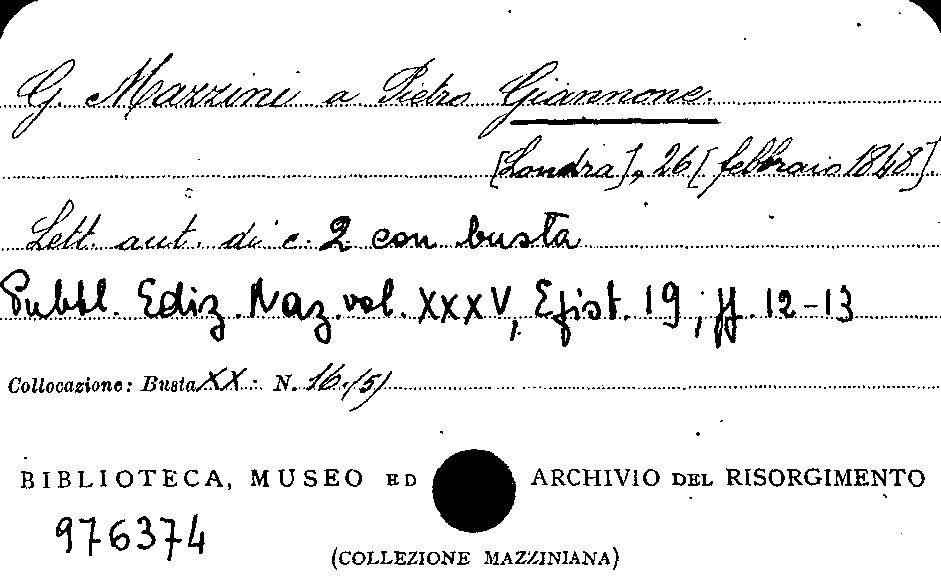 G. Mazzini a Pietro Giannone.
[Londra], 26 [febbraio 1848].
Lett. aut. di c. 2 con busta
Pubbl. Ediz. Naz. vol. XXXV, Epist. 19, pp. 12-13
Collocazione: Busta XX. N. 16.(5)
BIBLIOTECA, MUSEO ED ARCHIVIO DEL RISORGIMENTO
976374
(COLLEZIONE MAZZINIANA)